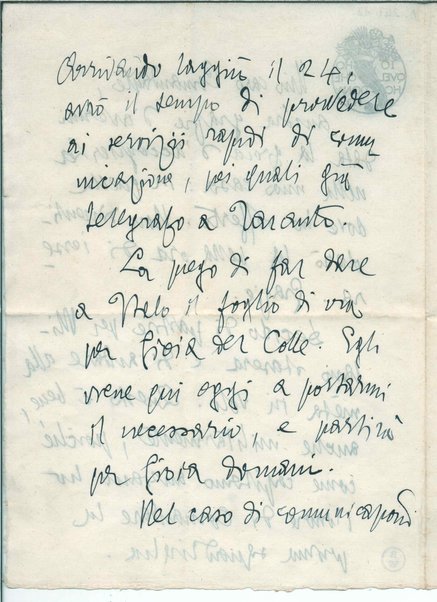 Arrivando laggiù il 24,
avrò il tempo di provvedere
ai servizii rapidi di comu
nicazione, pei quali già
telegrafo a Taranto.
La prego di far dare
a Italo il foglio di via
per Gioia del Colle. Egli
viene qui oggi a portarmi
il necessario, e partirà
per Gioia domani.
Nel caso di comunicazioni